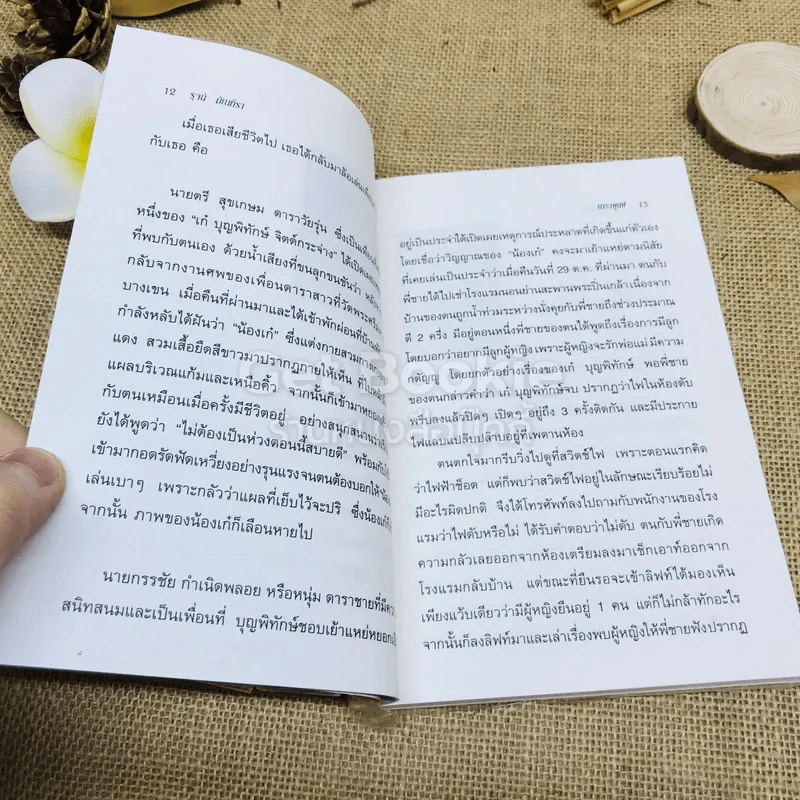 12 รุจน์ มัณฑิรา
เมื่อเธอเสียชีวิตไป เธอได้กลับมาล้อเล่นเพื่อน
กับเธอ คือ
นายตรี สุขเกษม ดาราวัยรุ่น ซึ่งเป็นเพื่อน
หนึ่งของ “เก๋ บุญพิทักษ์ จิตต์กระจ่าง” ได้เปิดเผย
ที่พบกับตนเอง ด้วยน้ำเสียงที่ขนลุกขนชันว่า
กลับจากงานศพของเพื่อนดาราสาวที่วัดพระศรี
บางเขน เมื่อคืนที่ผ่านมาและได้เข้าพักผ่อนที่บ้าน
กำลังหลับได้ฝันว่า “น้องเก๋” ซึ่งแต่งกายสวมกางเกง
แดง สวมเสื้อยืดสีขาวมาปรากฏกายให้เห็น ที่ใบหน้า
แผลบริเวณแก้มและเหนือคิ้ว จากนั้นก็เข้ามาหยอก
กับตนเหมือนเมื่อครั้งมีชีวิตอยู่ อย่างสนุกสนาน
ยังได้พูดว่า “ไม่ต้องเป็นห่วงตอนนี้สบายดี” พร้อมกับ
เข้ามากอดรัดฟัดเหวี่ยงอย่างรุนแรงจนตนต้องบอกให้
เล่นเบาๆ เพราะกลัวว่าแผลที่เย็บไว้จะปริ ซึ่งน้องเก๋ก็
จากนั้น ภาพของน้องเก๋ก็เลือนหายไป
นายกรรชัย กำเนิดพลอย หรือหนุ่ม ดาราชายที่มีความ
สนิทสนมและเป็นเพื่อนที่ บุญพิทักษ์ชอบเย้าแหย่หยอก
13
อยู่เป็นประจำได้เปิดเผยเหตุการณ์ประหลาดที่เกิดขึ้นแก่ตัวเอง
โดยเชื่อว่าวิญญาณของ “น้องเก๋” คงจะมาเย้าแหย่ตามนิสัย
ที่เคยเล่นเป็นประจำว่าเมื่อคืนวันที่ 29 ต.ค. ที่ผ่านมา ตนกับ
พี่ชายได้ไปเช่าโรงแรมนอนย่านสะพานพระปิ่นเกล้า เนื่องจาก
บ้านของตนถูกน้ำท่วมระหว่างนั่งคุยกับพี่ชายถึงช่วงประมาณ
ตี 2 ครึ่ง มีอยู่ตอนหนึ่งที่พี่ชายของตนได้พูดถึงเรื่องการมีลูก
โดยบอกว่าอยากมีลูกผู้หญิง เพราะผู้หญิงจะรักพ่อแม่ มีความ
กตัญญู โดยยกตัวอย่างเรื่องของเก๋ บุญพิทักษ์ พอพี่ชาย
ของตนกล่าวคำว่า เก๋ บุญพิทักษ์จบ ปรากฏว่าไฟในห้องดับ
พรึบลงแล้วปิดๆ เปิดๆ อยู่ถึง 3 ครั้งติดกัน และมีประกาย
ไฟแลบแปลบปลาบอยู่ที่เพดานห้อง
ตนตกใจมากรีบวิ่งไปดูที่สวิตช์ไฟ เพราะตอนแรกคิด
ว่าไฟฟ้าช็อต แต่ก็พบว่าสวิตช์ไฟอยู่ในลักษณะเรียบร้อยไม่
มีอะไรผิดปกติ จึงได้โทรศัพท์ลงไปถามกับพนักงานของโรง
แรมว่าไฟดับหรือไม่ ได้รับคำตอบว่าไม่ดับ ตนกับพี่ชายเกิด
ความกลัวเลยออกจากห้องเตรียมลงมาเช็กเอาท์ออกจาก
โรงแรมกลับบ้าน แต่ขณะที่ยืนรอจะเข้าลิฟท์ได้มองเห็น
เพียงแว้บเดียวว่ามีผู้หญิงยืนอยู่ 1 คน แต่ก็ไม่กล้าทักอะไร
จากนั้นก็ลงลิฟท์มาและเล่าเรื่องพบผู้หญิงให้พี่ชายฟังปรากฏ
Get Bookie
ร้านหนังสือบุ๊คกี้